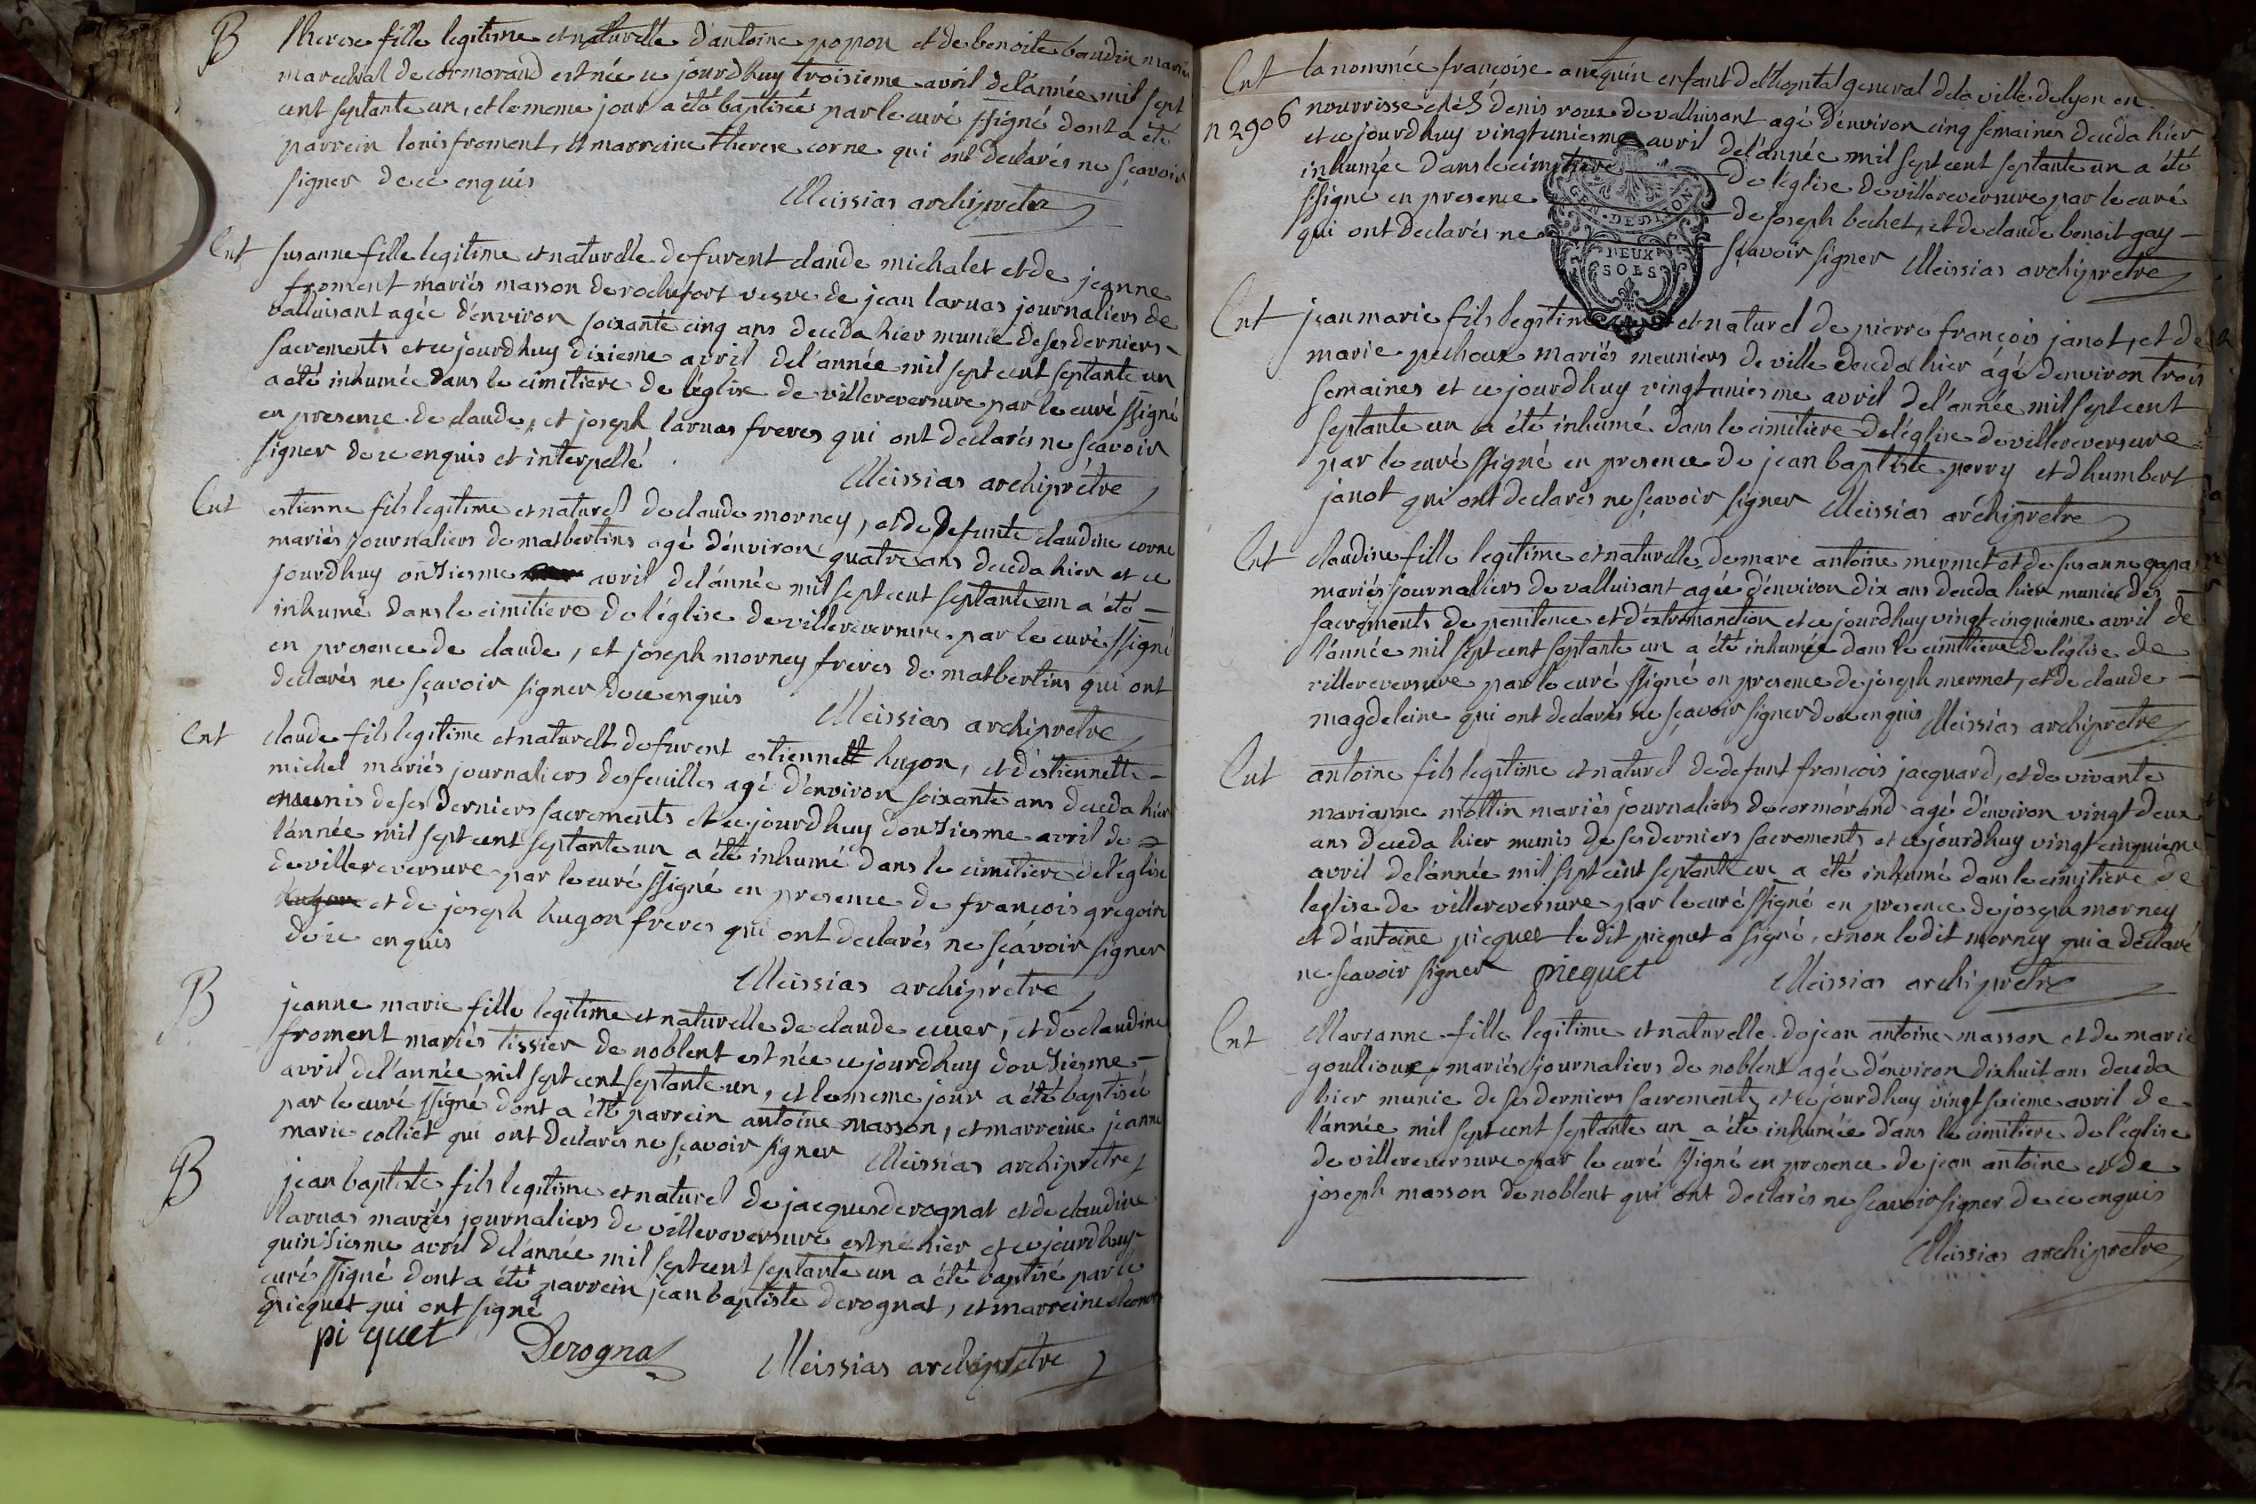 B therese fille legitime et naturelle d'antoine popon et de benoite baudin mariés
marechal de cormorand est née ce jourdhuy troisieme avril de l'année mil sept
cent septante un, et le meme jour a été baptisée par le curé ssigné dont a été
parrein louis froment, et marreine therese corne qui ont declarés ne sçavoir
signer de ce enquis
Meissias archipretre
Ent susanne fille legitime et naturelle de furent claude michalet et de jeanne
froment mariés masson de rochefort vesve de jean laruas journaliers de
valluisant agée d'environ soixante cinq ans deceda hier munie de ses derniers
sacrements et ce jourdhuy dixieme avril de l'année mil sept cent septante un
a été inhumée dans le cimitiere de l'église de villereversure par le curé ssigné
en presence de claude, et joseph laruas freres qui ont declarés ne sçavoir
signer de ce enquis et interpellé
Meissias archiprétre
Ent estienne fils legitime et naturel de claude morney, et de defunte claudine corne
mariés journaliers de matbertins agé d'environ quatre ans deceda hier et ce
jourdhuy onziesme avril de l'année mil sept cent septante un a été
inhumé dans le cimitiere de l'église de villereversure par le curé ssigné
en presence de claude, et joseph morney freres de matbertins qui ont
declarés ne sçavoir signer de ce enquis
Meissias archipretre
Ent claude fils legitime et naturelt de furent estiennett hugon, et d'estiennette
michel mariés journaliers desfeuilles agé d'environ soixante ans deceda hier
munis de ses derniers sacrements et ce jourdhuy douziesme avril de
l'année mil sept cent septante un a été inhumé dans le cimitiere de l'église
de villereversure par le curé ssigné en presence de françois gregoire
hugon et de joseph hugon freres qui ont declarés ne sçavoir signer
de ce enquis
Meissias archiprétre
B jeanne marie fille legitime et naturelle de claude cuuer, et de claudine
froment mariés tissier de noblent est née ce jourdhuy douziesme
avril de l'année mil sept cent septante un, et le meme jour a été baptisée
par le curé ssigné dont a été parrein antoine masson, et marreine jeanne
marie colliet qui ont declarés ne sçavoir signer Meissias archiprétre
B jean baptiste fils legitime et naturel de jacques derognat et de claudine
laruas mariés journaliers de villereversure est né hier et ce jourdhuy
quinziesme avril de l'année mil sept cent septante un a été baptisé par le
curé ssigné dont a été parrein jean baptiste derognat, et marreine
picquet qui ont signé
pi quet Derogna Meissias archiprétre
Ent la nommée françoise anequin enfant de l'hopital general de la ville de lyon en
n 2906 nourrisse chés denis roux de valluisant agé d'environ cinq semaines deceda hier
et ce jourdhuy vingtuniesme avril de l'année mil sept cent septante un a été
inhumée dans le cimitiere de l'église de villereversure par le curé
ssigné en presence de joseph bechet, et de claude benoit gay
qui ont declarés ne sçavoir signer Meissias archipretre
GEN. DE DIJON
DEUX
SOLS
Ent jean marie fils legitime et naturel de pierre françois janot, et de
marie pechoux mariés meuniers de ville deceda hier agé d'environ trois
semaines et ce jourdhuy vingtuniesme avril de l'année mil sept cent
septante un a été inhumé dans le cimitiere de l'église de villereversure
par le curé ssigné en presence de jean baptiste perry et d'humbert
janot qui ont declarés ne sçavoir signer Meissias archipretre
Ent claudine fille legitime et naturelle de marc antoine mermet et de susanne
mariés journaliers de valluisant agée d'environ dix ans deceda hier munie des
sacrements de penitence et d'extremonction et ce jourdhuy vingt cinquieme avril de
l'année mil sept cent septante un a été inhumée dans le cimitiere de l'église de
villereversure par le curé ssigné en presence de joseph mermet, et de claude
magdeleine qui ont declarés ne sçavoir signer de ce enquis Meissias archipretre
Ent antoine fils legitime et naturel de defunt francois jacquard, et de vivante
marianne mottin mariés journaliers de cormorand agé d'environ vingt deux
ans deceda hier munis de ses derniers sacrements et ce jourdhuy vingt cinquieme
avril de l'année mil sept cent septante un a été inhumé dans le cimitiere de
leglise de villereversure par le curé ssigné en presence de joseph morney
et d'antoine picquet le dit picquet a signé, et non le dit morney qui a declaré
ne sçavoir signer picquet Meissias archipretre
Ent Marianne fille legitime et naturelle de jean antoine masson et de marie
goullioux mariés journaliers de noblent agée d'environ dixhuit ans deceda
hier munie de ses derniers sacrements et ce jourdhuy vingt sixieme avril de
l'année mil sept cent septante un a été inhumée dans le cimitiere de l'église
de villereversure par le curé ssigné en presence de jean antoine et de
joseph masson de noblent qui ont declarés ne sçavoir signer de ce enquis
Meissias archipretre